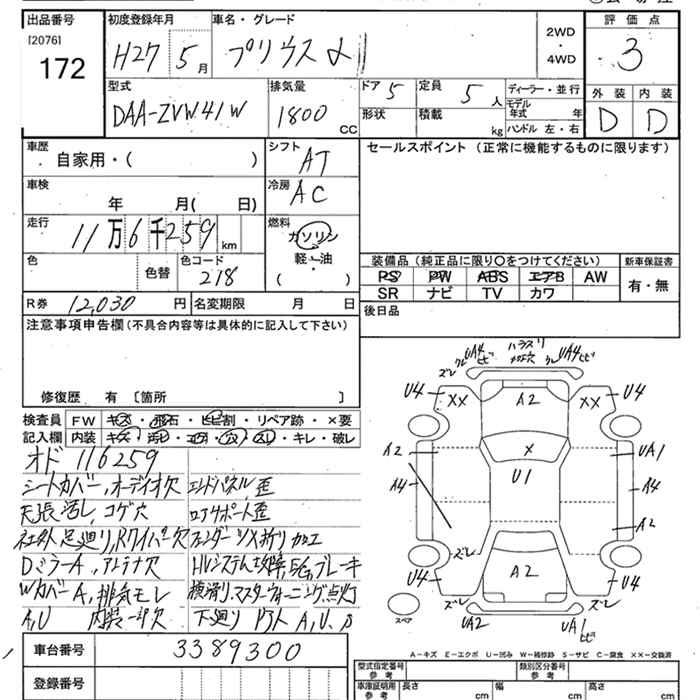 出品番号
[2076]
172
初度登録年月
H27 5月
車名・グレード
プリウスα
2WD
・
4WD
評価点
3
型式
DAA-ZVW41W
排気量
1800 CC
ドア 5
定員 5人
ディーラー・並行
形状
積載 kg
モデル年式 年
ハンドル 左・右
外装 内装
D D
車歴
自家用・( )
シフト
AT
セールスポイント (正常に機能するものに限ります)
車検
年 月( 日)
冷房
AC
走行
11万6千259 km
燃料
ガソリン
軽油
( )
色
色替
色コード
218
装備品 (純正品に限り○をつけてください)
新車保証書
PS PW ABS エアB AW
有・無
SR ナビ TV カワ
R券 12,030円
名変期限 月 日
後日品
注意事項申告欄 (不具合内容等は具体的に記入して下さい)
修復歴 有 〔箇所 〕
検査員
記入欄
FW キズ・飛石・ヒビ割・リペア跡・×要
内装 キズ・汚レ・コゲ・穴・スレ・キレ・破レ
オド 116259
シートカバー,オーディオ欠
エンドパネル歪
天張汚レ,コゲ穴
ロアサポート歪
社外足廻り,Rワイパー欠
フェンダーツメ折り加工
DミラーA,アンテナ欠
HVシステム故障,
ブレーキ
WカバーA,排気モレ
マスターウォーニング点灯
A,U 内装一部欠
下廻り
A,U,
ズレ UA4 ヒビ
UA4 ヒビ
U4 XX A2 XX U4
A2 X UA1
A4 U1 A4
A2
ズレ ズレ
U4 A2 U4
ズレ ズレ
スペア
UA2 UA1 ヒビ
A-キズ E-エクボ U-凹み W-補修跡 S-サビ C-腐食 XX-交換済
車台番号 3389300
登録番号
型式指定番号 参考
類別区分番号 参考
車庫証明用 参考
長さ cm
幅 cm
高さ cm